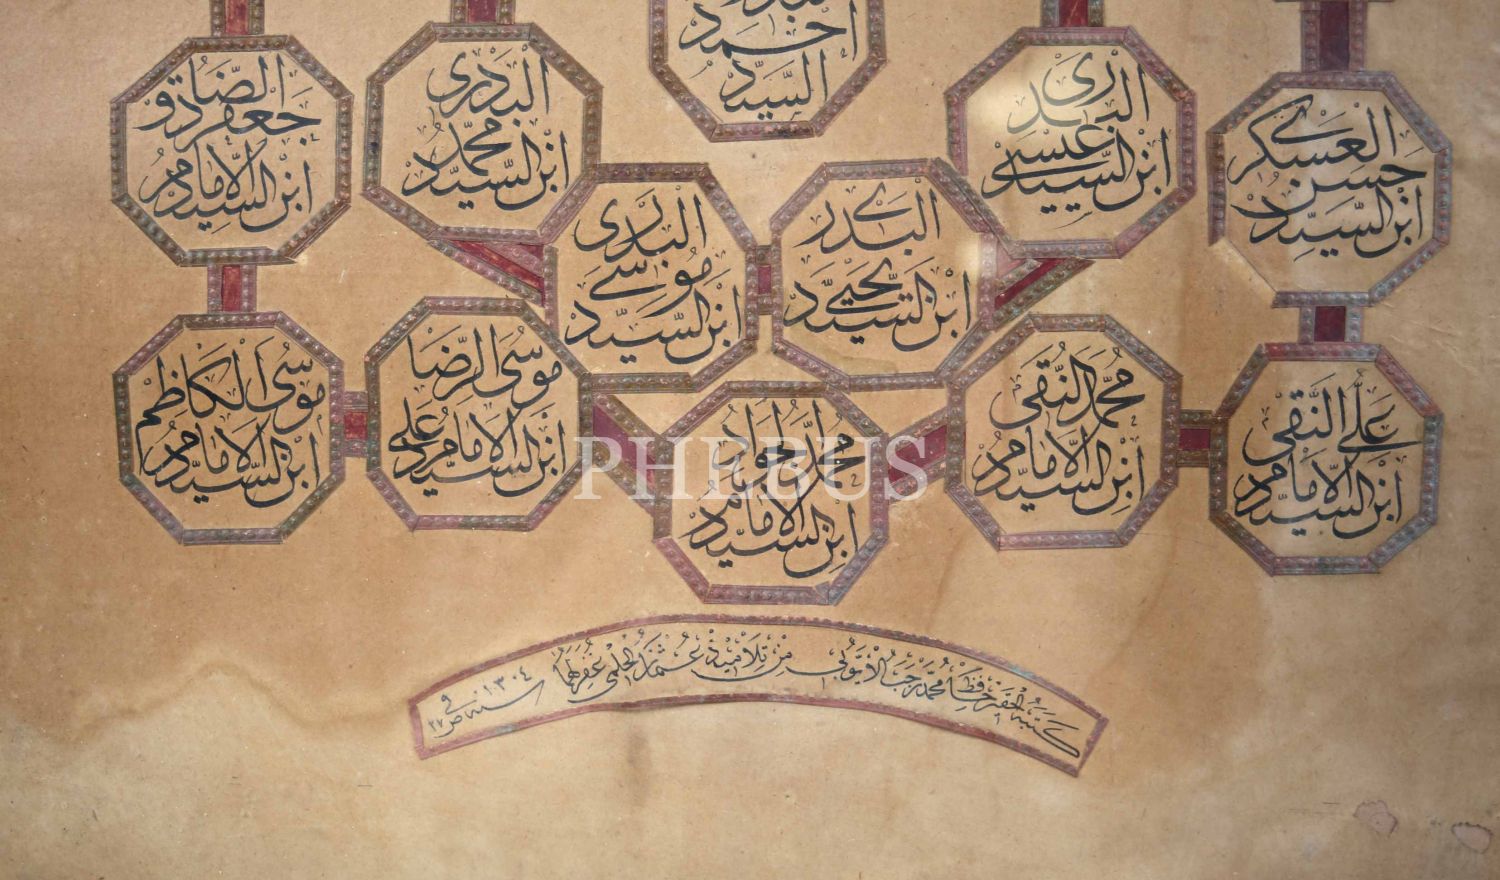 البدوى
احمد
السيد
جعفر الصادق
ابن السيد الامام
البدرى
محمد
ابن السيد
البدرى
عيسى
ابن السيد
العسكرى
حسن
ابن السيد
البدرى
موسى
ابن السيد
البدرى
يحيى
ابن السيد
موسى الكاظم
ابن السيد الامام
موسى الرضا
ابن السيد الامام على
محمد الجواد
ابن السيد الامام
محمد النقى
ابن السيد الامام
على النقى
ابن السيد الامام
PHEBUS
كتبه الحقير حافظ محمد رجب الايوبى من تلاميذ عثمان الحلمى غفر لهما
فى ٢٧ ص سنه ١٣٠٤